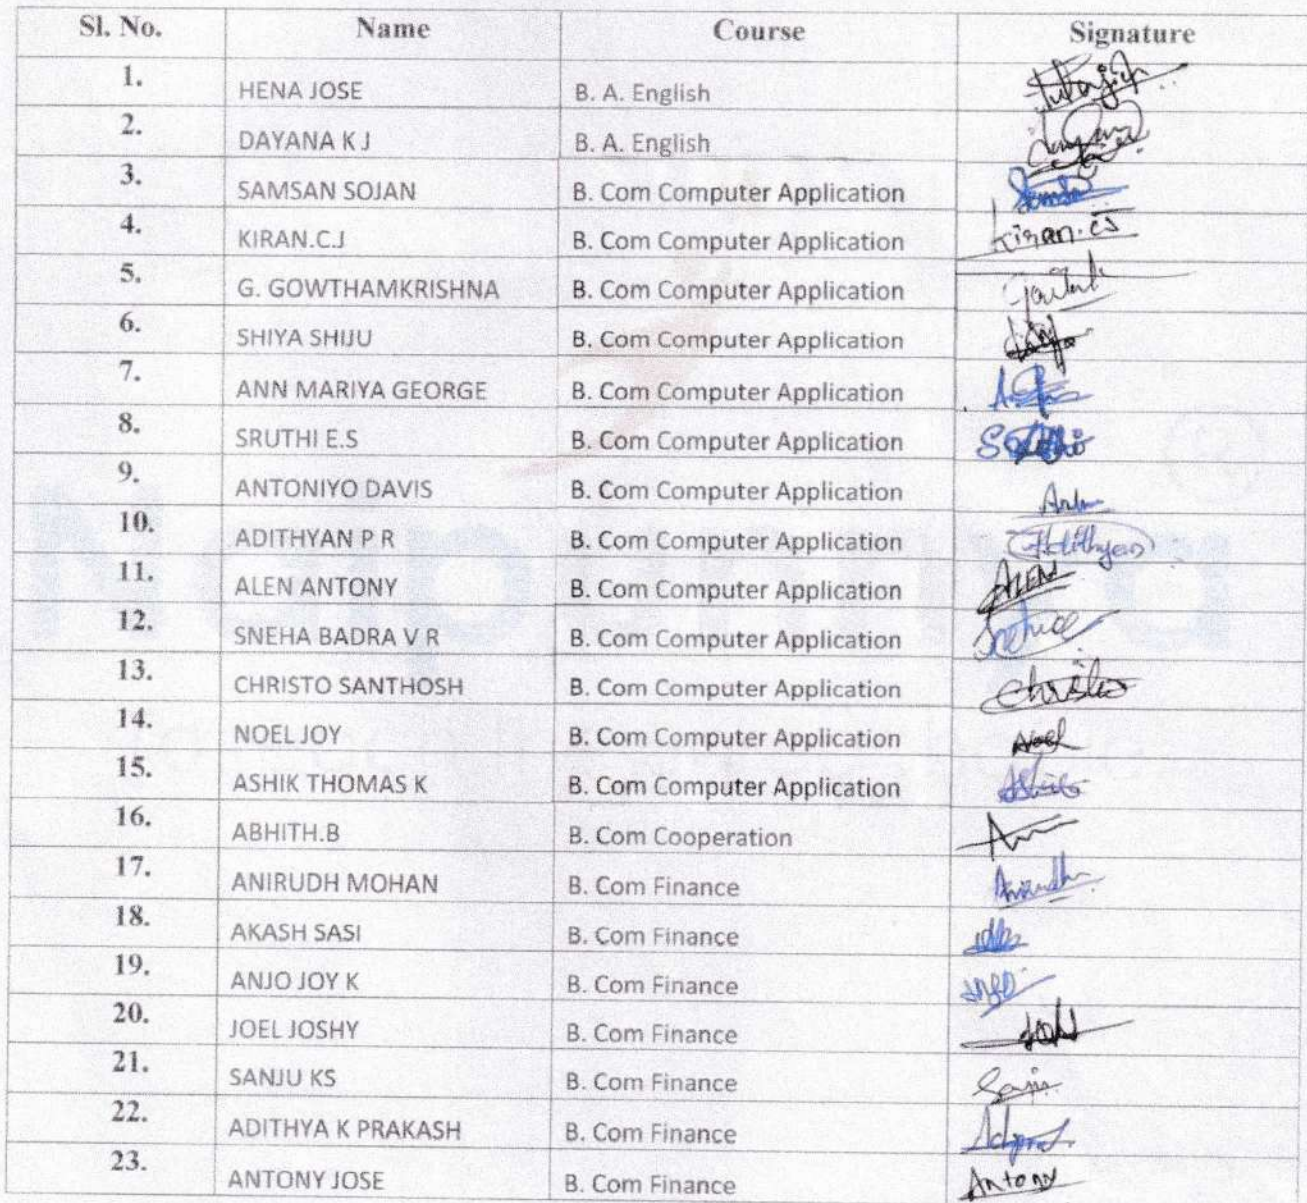 Sl. No. Name Course Signature
1. HENA JOSE B. A. English
2. DAYANA K J B. A. English
3. SAMSAN SOJAN B. Com Computer Application
4. KIRAN.C.J B. Com Computer Application Kiran.CJ
5. G. GOWTHAMKRISHNA B. Com Computer Application
6. SHIYA SHIJU B. Com Computer Application
7. ANN MARIYA GEORGE B. Com Computer Application
8. SRUTHI E.S B. Com Computer Application
9. ANTONIYO DAVIS B. Com Computer Application
10. ADITHYAN P R B. Com Computer Application Adithyan
11. ALEN ANTONY B. Com Computer Application ALEN
12. SNEHA BADRA V R B. Com Computer Application
13. CHRISTO SANTHOSH B. Com Computer Application Christo
14. NOEL JOY B. Com Computer Application Noel
15. ASHIK THOMAS K B. Com Computer Application
16. ABHITH.B B. Com Cooperation
17. ANIRUDH MOHAN B. Com Finance
18. AKASH SASI B. Com Finance
19. ANJO JOY K B. Com Finance
20. JOEL JOSHY B. Com Finance
21. SANJU KS B. Com Finance
22. ADITHYA K PRAKASH B. Com Finance
23. ANTONY JOSE B. Com Finance Antony